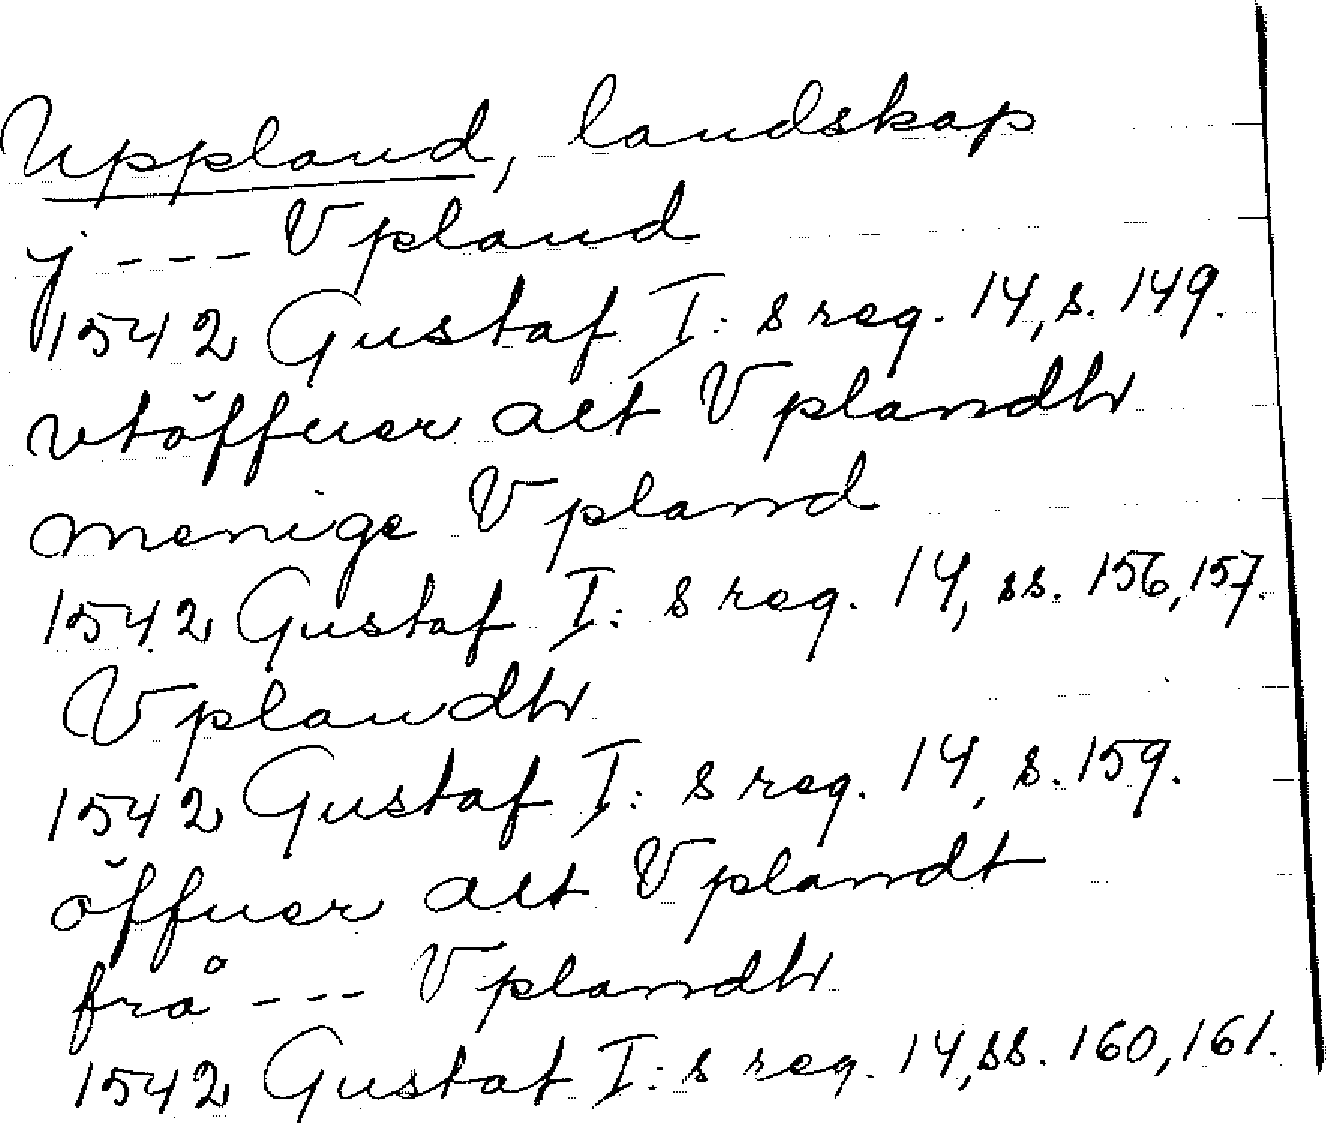 Uppland, landskap
j --- Vpland
1542 Gustaf I:s reg. 14, s. 149.
vtöffuer alt Vplandh
menige Vpland
1542 Gustaf I:s reg. 14, ss. 156, 157.
Vplandh
1542 Gustaf I:s reg. 14, s. 159.
öffuer alt Vplandt
frå --- Vplandh
1542 Gustaf I:s reg. 14, ss. 160, 161.